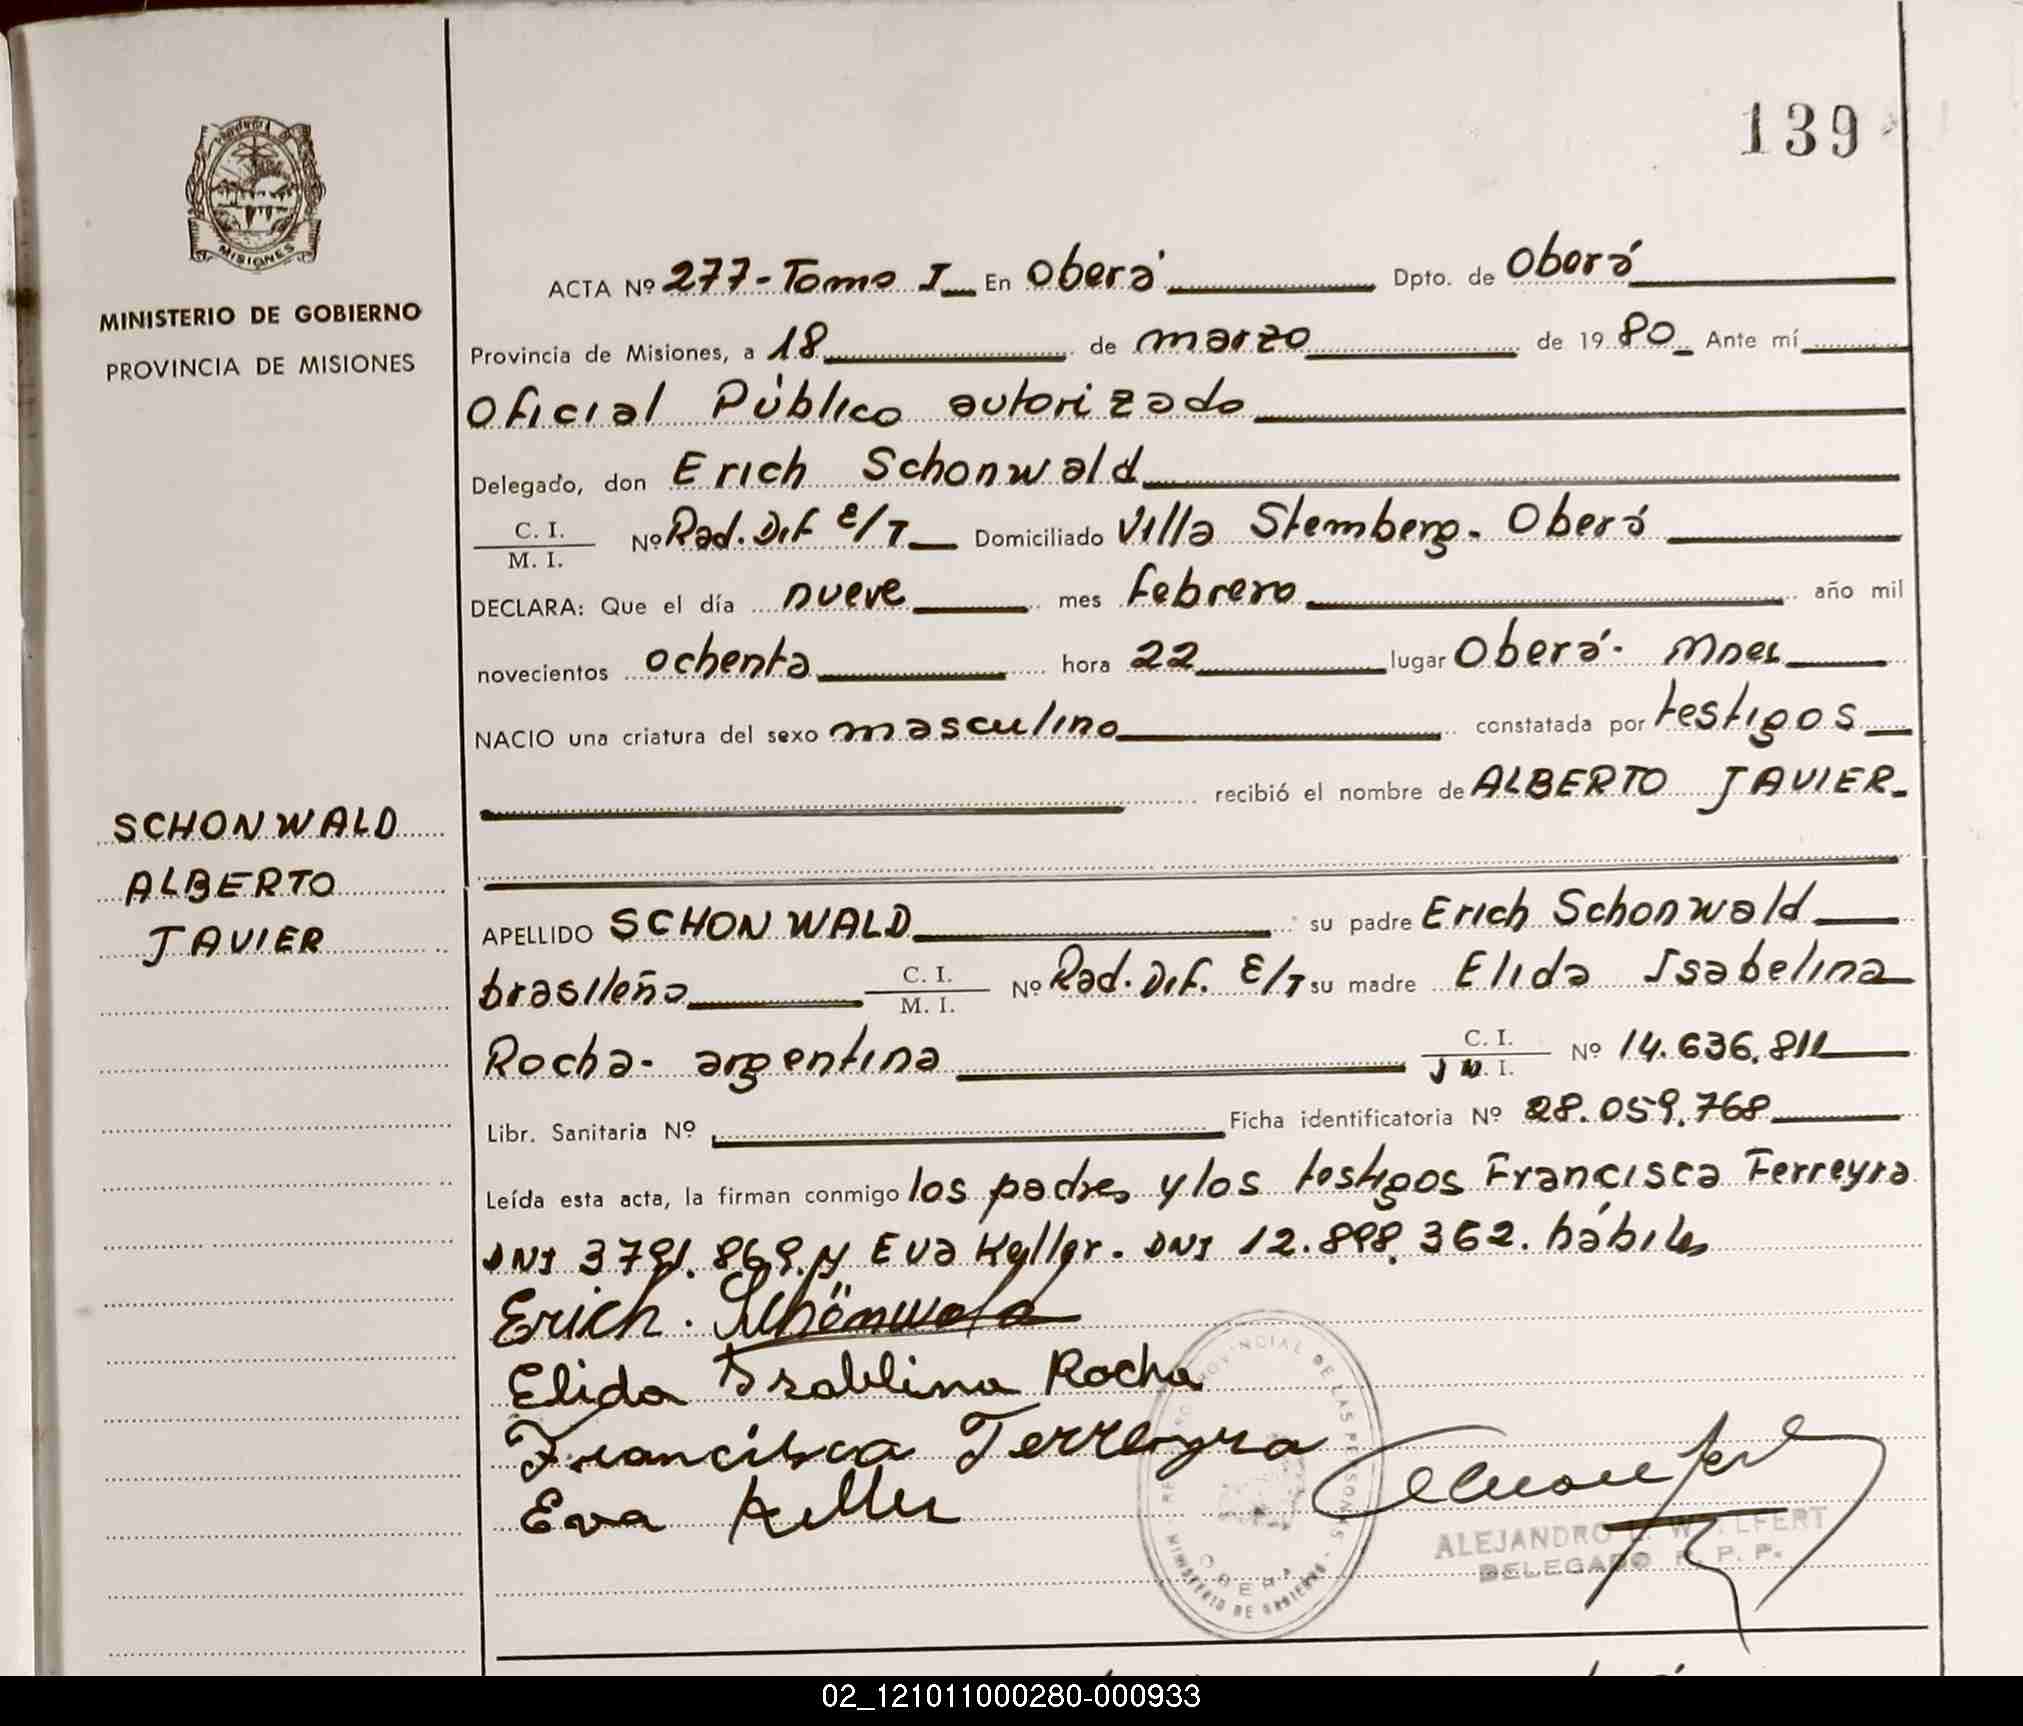 139
PROVINCIA DE
MISIONES
MINISTERIO DE GOBIERNO
PROVINCIA DE MISIONES
ACTA Nº 277-Tomo I En Oberá Dpto. de Oberá
Provincia de Misiones, a 18 de marzo de 1980 Ante mí
Oficial Público autorizado
Delegado, don Erich Schonwald
C. I.
M. I. Nº Rad. Dif E/T Domiciliado Villa Stemberg. Oberá
DECLARA: Que el día nueve mes febrero año mil
novecientos ochenta hora 22 lugar Oberá. Mnes
NACIO una criatura del sexo masculino constatada por testigos
recibió el nombre de ALBERTO JAVIER.
SCHONWALD
ALBERTO
JAVIER
APELLIDO SCHONWALD su padre Erich Schonwald
brasileño C. I. M. I. Nº Rad. Dif. E/T su madre Elida Isabelina
Rocha- argentina C. I. Nº 14.636.811
Libr. Sanitaria Nº Ficha identificatoria Nº 28.059.768
Leída esta acta, la firman conmigo los padres y los testigos Francisca Ferreyra
DNI 869. y Eva Keller. DNI 12.898.362. hábiles
Erich. Schönwald
Elida Isablina Rocha
Francisca Ferreyra
Eva Keller
REGISTRO PROVINCIAL DE LAS PERSONAS
OBERA
MINISTERIO DE GOBIERNO
ALEJANDRO
DELEGADO R. P. P.
02_121011000280-000933